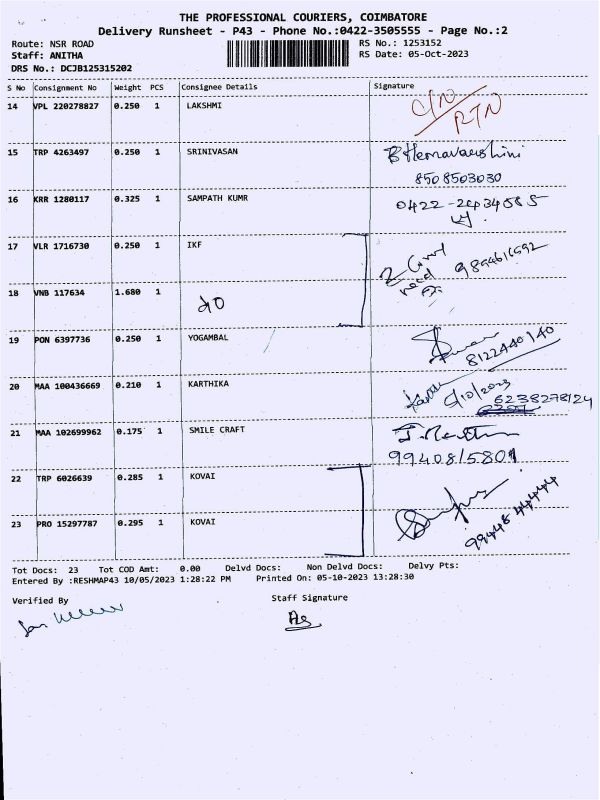 THE PROFESSIONAL COURIERS, COIMBATORE
Delivery Runsheet - P43 - Phone No.:0422-3505555 - Page No.:2
Route: NSR ROAD
RS No.: 1253152
Staff: ANITHA
RS Date: 05-Oct-2023
DRS No.: DCJB125315202
S No Consignment No Weight PCS Consignee Details Signature
14 VPL 220278827 0.250 1 LAKSHMI
RTN
15 TRP 4263497 0.250 1 SRINIVASAN
8508503030
16 KRR 1280117 0.325 1 SAMPATH KUMR
17 VLR 1716730 0.250 1 IKF
18 VNB 117634 1.680 1 do
19 PON 6397736 0.250 1 YOGAMBAL
8122440140
20 MAA 100436669 0.210 1 KARTHIKA
5/10/2023
6238278124
21 MAA 102699962 0.175 1 SMILE CRAFT
9940815801
22 TRP 6026639 0.285 1 KOVAI
23 PRO 15297787 0.295 1 KOVAI
9944844444
Tot Docs: 23 Tot COD Amt: 0.00 Delvd Docs: Non Delvd Docs: Delvy Pts:
Entered By :RESHMAP43 10/05/2023 1:28:22 PM Printed On: 05-10-2023 13:28:30
Verified By
Staff Signature